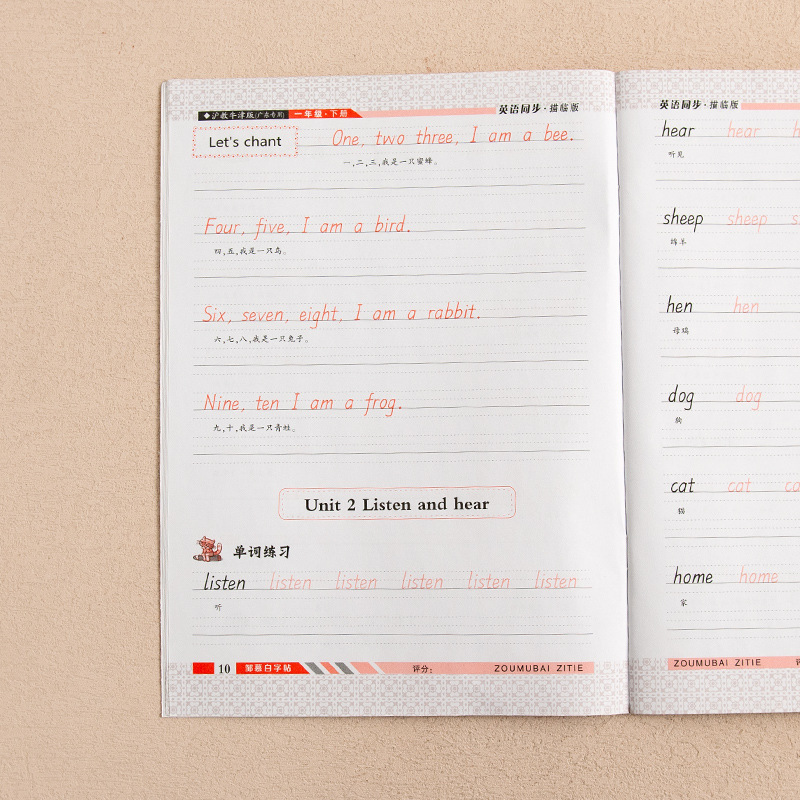 ◆沪教牛津版(广东专用) 一年级·下册 英语同步·描临版
Let's chant One, two three, I am a bee.
一,二,三,我是一只蜜蜂。
Four, five, I am a bird.
四,五,我是一只鸟。
Six, seven, eight, I am a rabbit.
六,七,八,我是一只兔子。
Nine, ten I am a frog.
九,十,我是一只青蛙。
Unit 2 Listen and hear
单词练习
listen listen listen listen listen listen
听
10 邹慕白字帖 评分: ZOUMUBAI ZITIE
英语同步·描临版
hear hear h
听见
sheep sheep s
绵羊
hen hen
母鸡
dog dog
狗
cat cat ca
猫
home home
家
ZOUMUBAI ZITIE